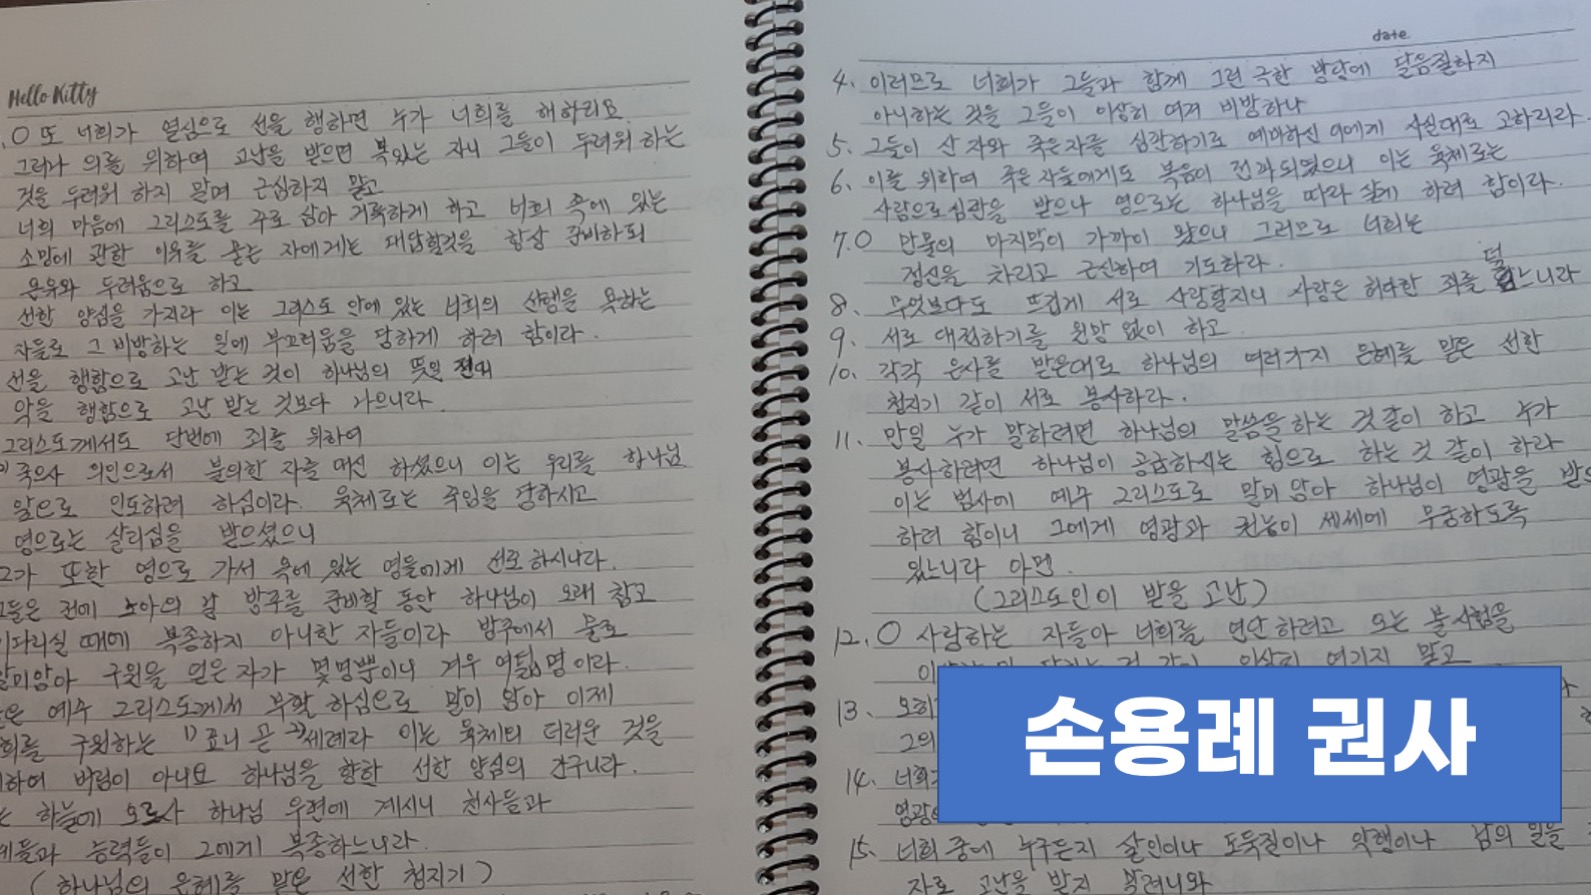 Hello Kitty
. O 또 너희가 열심으로 선을 행하면 누가 너희를 해하리요.
그러나 의를 위하여 고난을 받으면 복있는 자니 그들이 두려워 하는
것을 두려워 하지 말며 근심하지 말고
너희 마음에 그리스도를 주로 삼아 거룩하게 하고 너희 속에 있는
소망에 관한 이유를 묻는 자에게는 대답할것을 항상 준비하되
온유와 두려움으로 하고
선한 양심을 가지라 이는 그리스도 안에 있는 너희의 선행을 욕하는
자들로 그 비방하는 일에 부끄러움을 당하게 하려 함이라.
선을 행함으로 고난 받는 것이 하나님의 뜻일 진대
악을 행함으로 고난 받는 것보다 나으니라.
그리스도께서도 단번에 죄를 위하여
죽으사 의인으로서 불의한 자를 대신 하셨으니 이는 우리를 하나님
앞으로 인도하려 하심이라. 육체로는 죽임을 당하시고
영으로는 살리심을 받으셨으니
그가 또한 영으로 가서 옥에 있는 영들에게 선포하시니라.
그들은 전에 노아의 날 방주를 준비할 동안 하나님이 오래 참고
기다리실 때에 복종하지 아니한 자들이라 방주에서 물로
말미암아 구원을 얻은 자가 몇명뿐이니 겨우 여덟명이라.
예수 그리스도께서 부활 하심으로 말미 암아 이제
희를 구원하는 1) 표니 곧 2) 세례라 이는 육체의 더러운 것을
하여 버림이 아니요 하나님을 향한 선한 양심의 간구니라.
는 하늘에 오르사 하나님 우편에 계시니 천사들과
세들과 능력들이 그에게 복종하느니라.
(하나님의 은혜를 맡은 선한 청지기)
date
4. 이러므로 너희가 그들과 함께 그런 극한 방탕에 달음질하지
아니하는 것을 그들이 이상히 여겨 비방하나
5. 그들이 산 자와 죽은자를 심판하기로 예비하신 이에게 사실대로 고하리라
6. 이를 위하여 죽은 자들에게도 복음이 전파되었으니 이는 육체로는
사람으로 심판을 받으나 영으로는 하나님을 따라 살게 하려 함이라.
7. O 만물의 마지막이 가까이 왔으니 그러므로 너희는
정신을 차리고 근신하여 기도하라.
8. 무엇보다도 뜨겁게 서로 사랑할지니 사랑은 허다한 죄를 덮느니라
9. 서로 대접하기를 원망 없이 하고
10. 각각 은사를 받은대로 하나님의 여러가지 은혜를 맡은 선한
청지기 같이 서로 봉사하라.
11. 만일 누가 말하려면 하나님의 말씀을 하는 것 같이 하고 누가
봉사하려면 하나님이 공급하시는 힘으로 하는 것 같이 하라
이는 범사에 예수 그리스도로 말미 암아 하나님이 영광을 받으
하려 함이니 그에게 영광과 권능이 세세에 무궁하도록
있느니라 아멘.
(그리스도인이 받을 고난)
12. O 사랑하는 자들아 너희를 연단하려고 오는 불시험을
이상히 여기지 말고
13.
그의
14. 너희가
15. 너희 중에 누구든지 살인이나 도둑질이나 악행이나 남의 일을
자로 고난을 받지 말려니와
손용례 권사